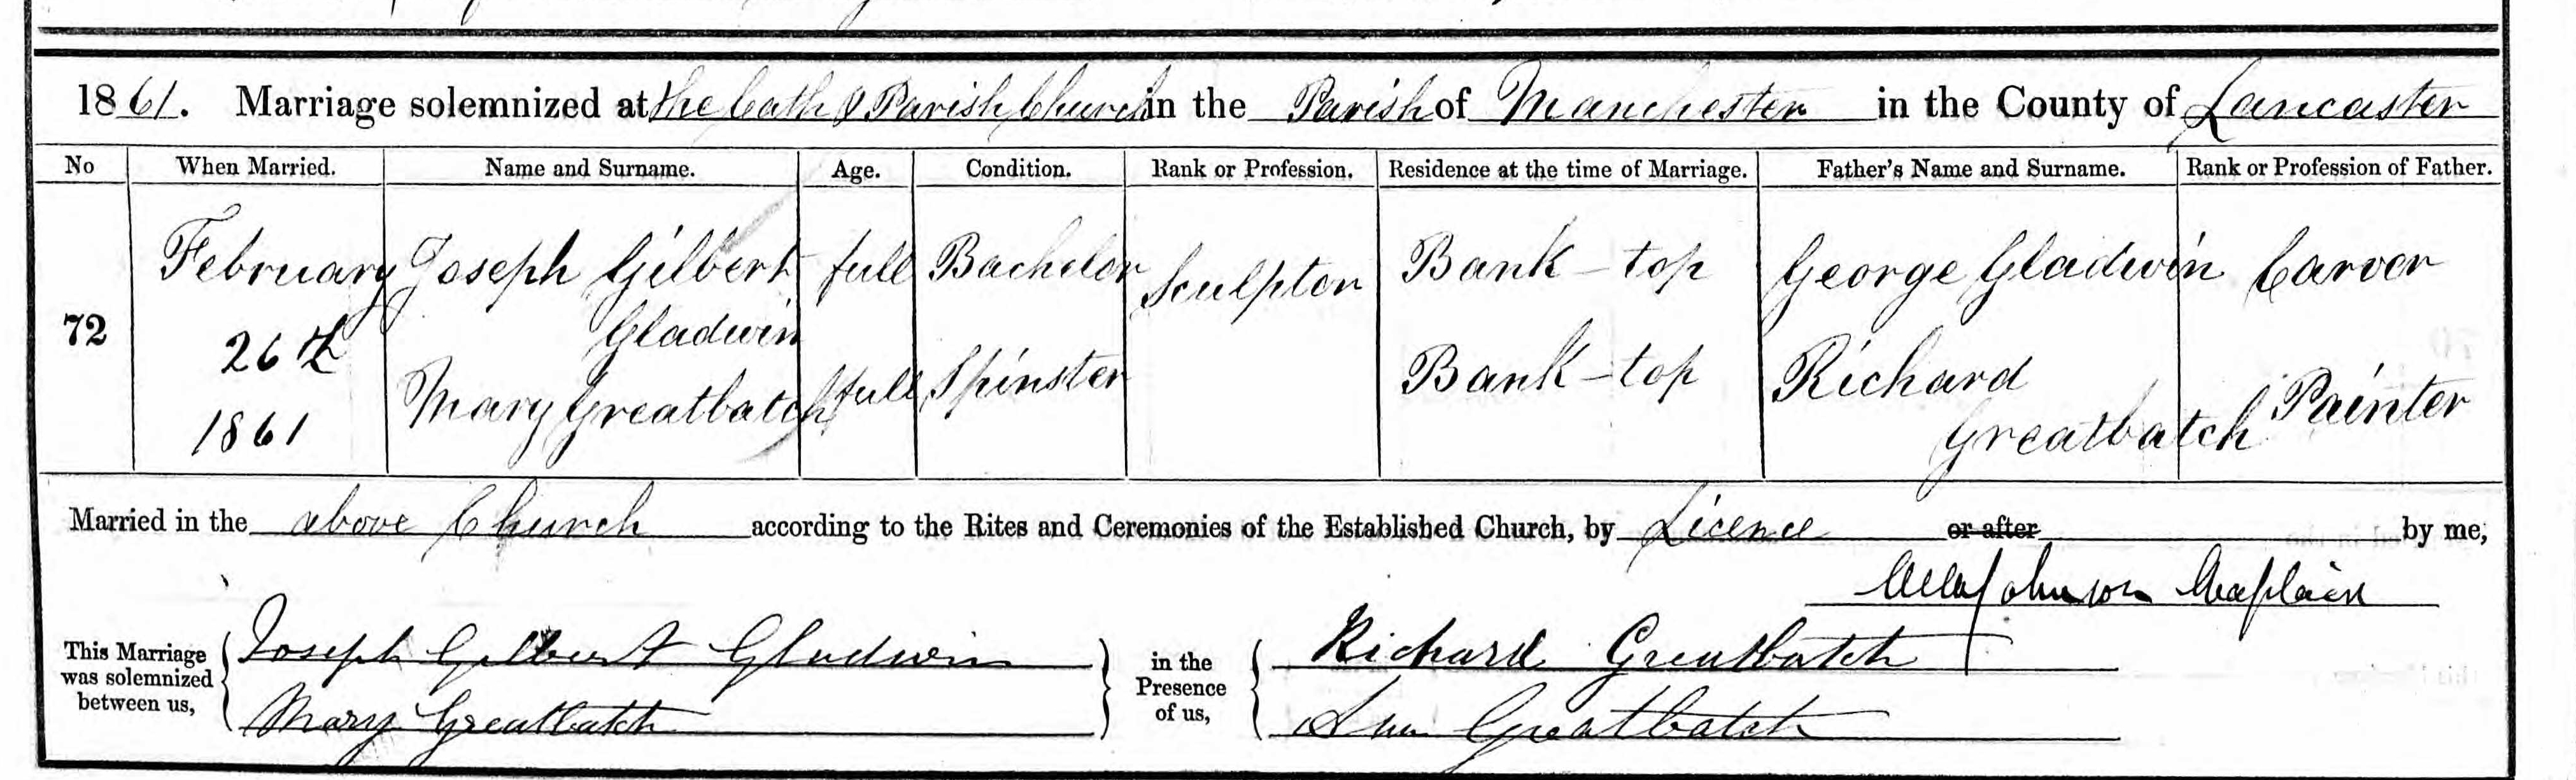 1861. Marriage solemnized at the Cath & Parish Church in the Parish of Manchester in the County of Lancaster
No When Married. Name and Surname. Age. Condition. Rank or Profession. Residence at the time of Marriage. Father's Name and Surname. Rank or Profession of Father.
72
February
26th
1861
Joseph Gilbert
Gladwin
full Bachelor Sculptor Bank-top George Gladwin Carver
Mary Greatbatch full Spinster Bank-top Richard
Greatbatch Painter
Married in the above Church according to the Rites and Ceremonies of the Established Church, by Licence or after by me,
Johnson Chaplain
This Marriage
was solemnized
between us,
Joseph Gilbert Gladwin
Mary Greatbatch
in the
Presence
of us,
Richard Greatbatch
Ann Greatbatch